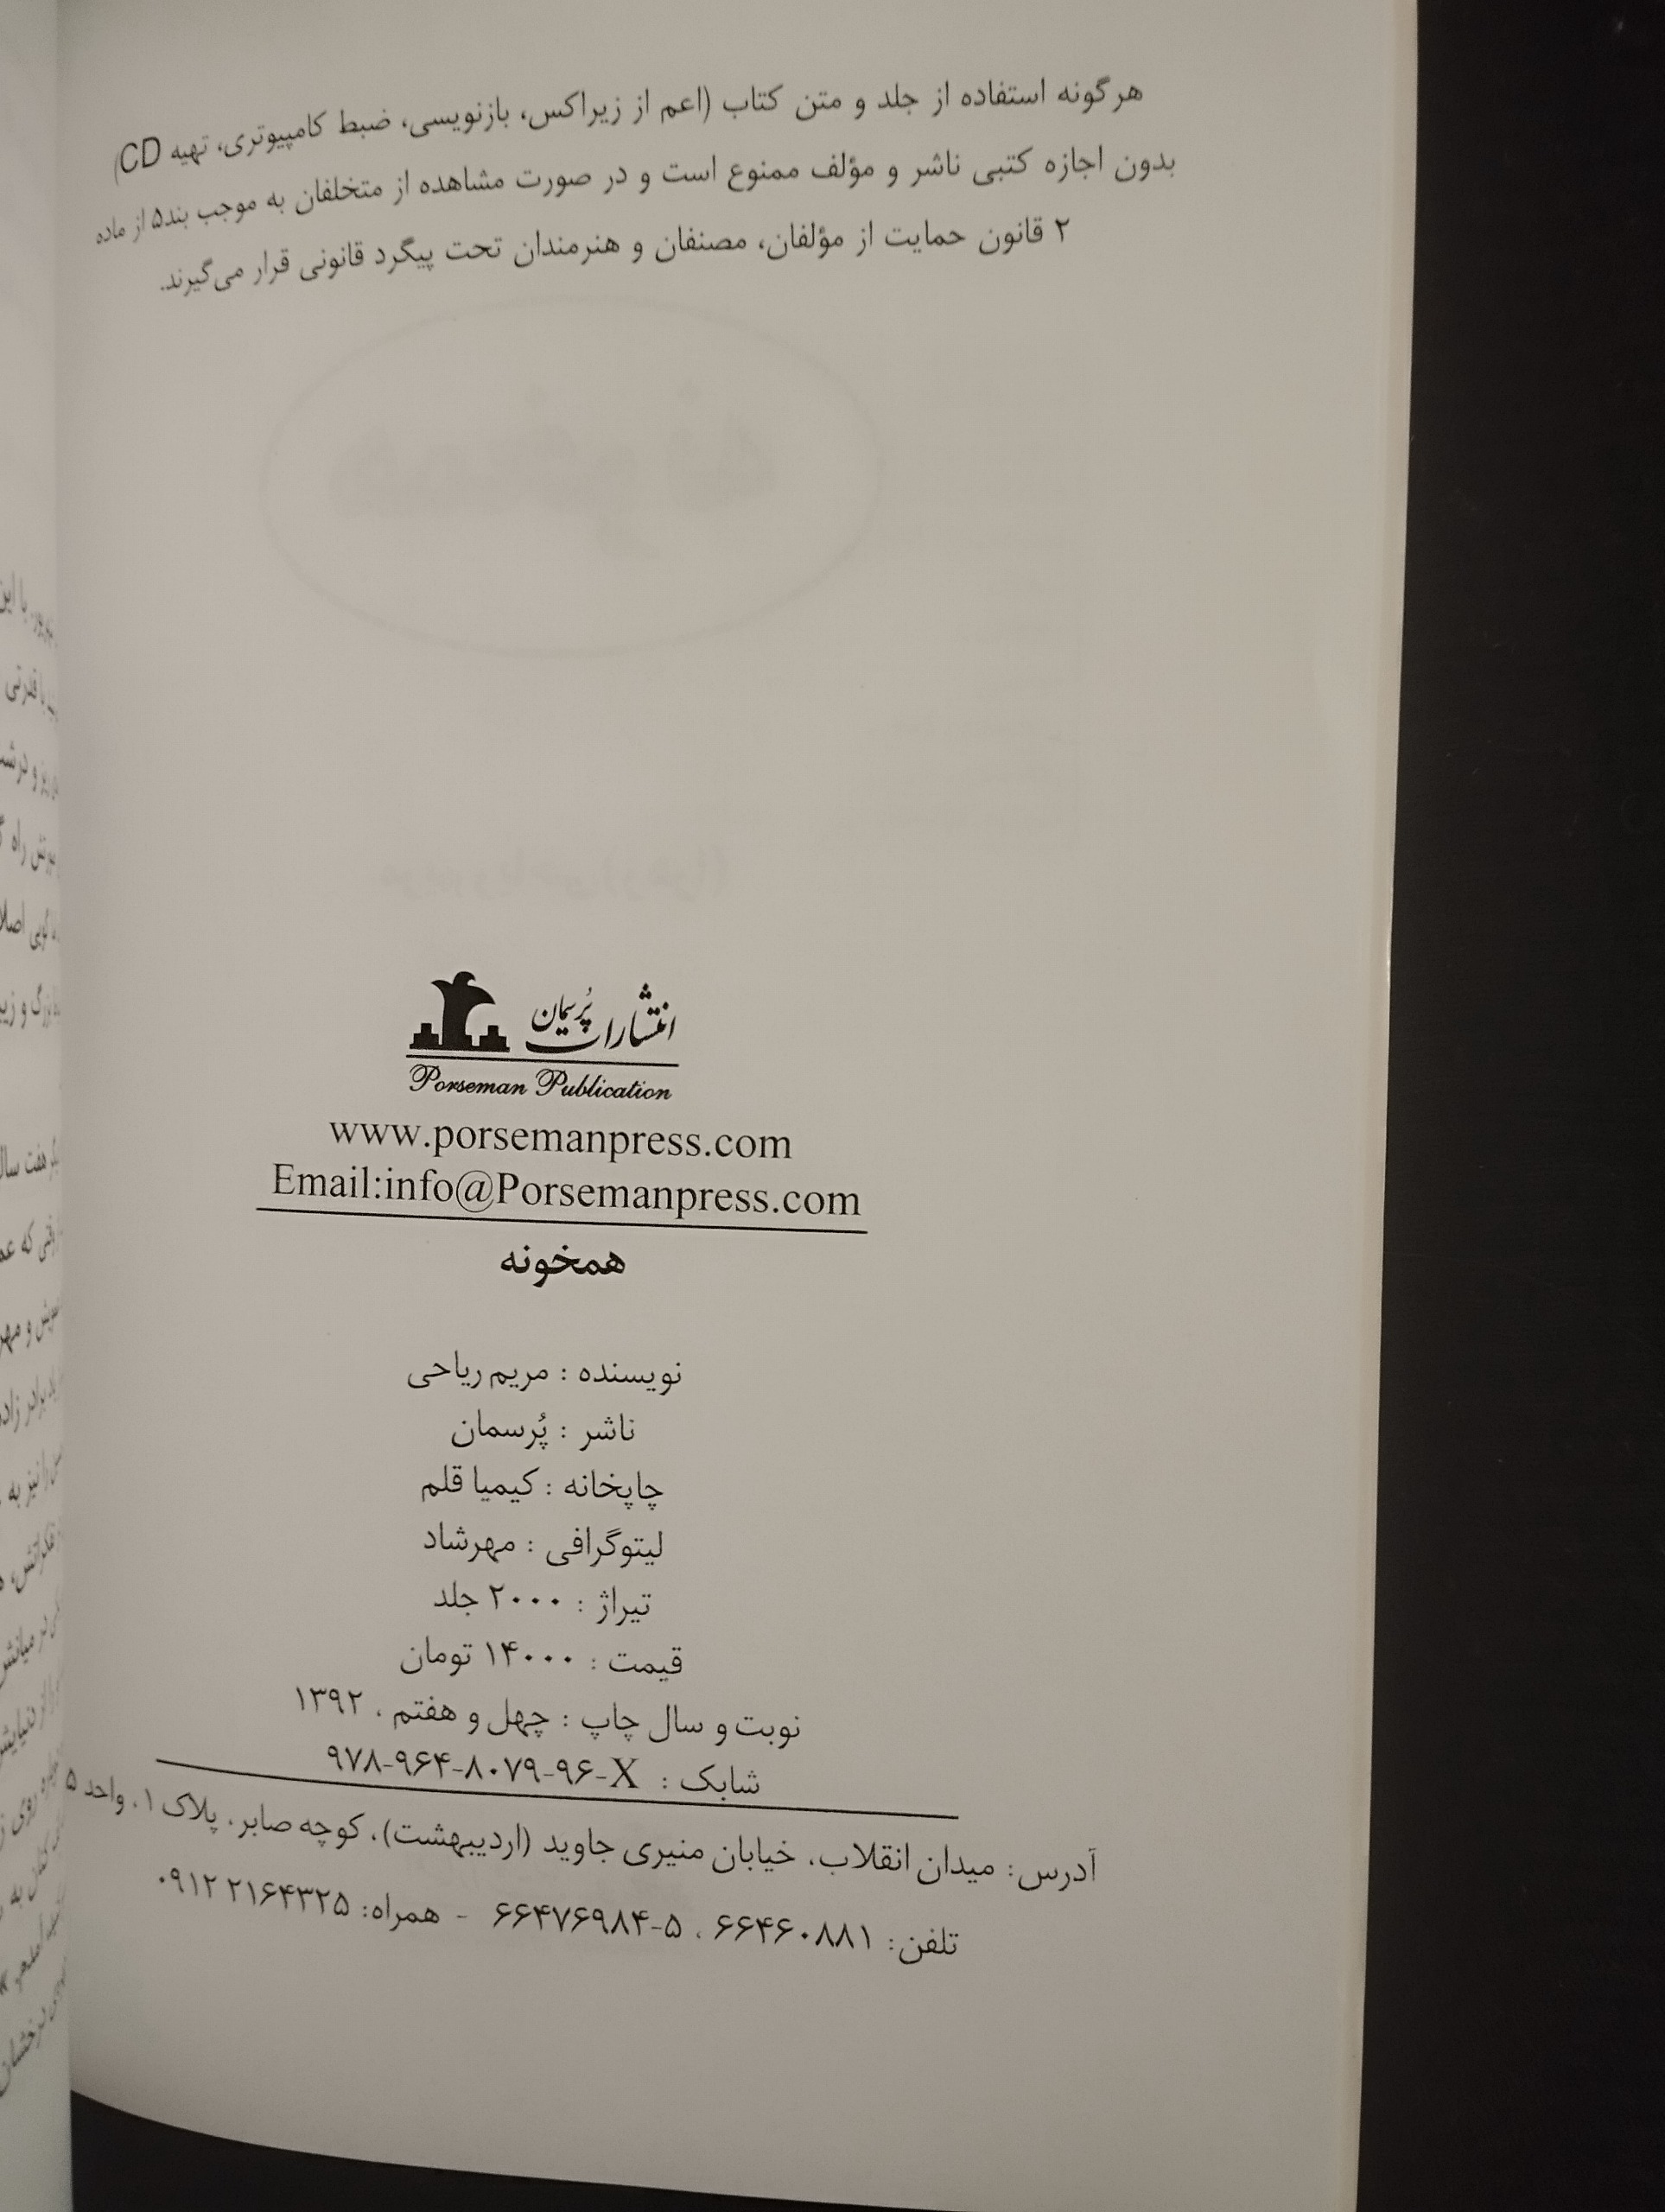 هرگونه استفاده از جلد و متن کتاب (اعم از زیراکس، بازنویسی، ضبط کامپیوتری، تهیه CD)
بدون اجازه کتبی ناشر و مؤلف ممنوع است و در صورت مشاهده از متخلفان به موجب بند۵ از ماده
۲ قانون حمایت از مؤلفان، مصنفان و هنرمندان تحت پیگرد قانونی قرار می‌گیرند.
انتشارات پُرسمان
Porseman Publication
www.porsemanpress.com
Email:info@Porsemanpress.com
همخونه
نویسنده : مریم ریاحی
ناشر : پُرسمان
چاپخانه : کیمیا قلم
لیتوگرافی : مهرشاد
تیراژ : ۲۰۰۰ جلد
قیمت : ۱۴۰۰۰ تومان
نوبت و سال چاپ : چهل و هفتم ، ۱۳۹۲
شابک : ۹۷۸-۹۶۴-۸۰۷۹-۹۶-X
آدرس: میدان انقلاب، خیابان منیری جاوید (اردیبهشت)، کوچه صابر، پلاک ۱، واحد ۵
تلفن: ۶۶۴۶۰۸۸۱ ، ۵-۶۶۴۷۶۹۸۴ - همراه: ۲۱۶۴۳۲۵ ۰۹۱۲
با این
با قدرتی
ریز و درشت
راه
اصلا
بزرگ و
هفت سال
که
و مهر
برادر زاده
را نیز به
روی
به